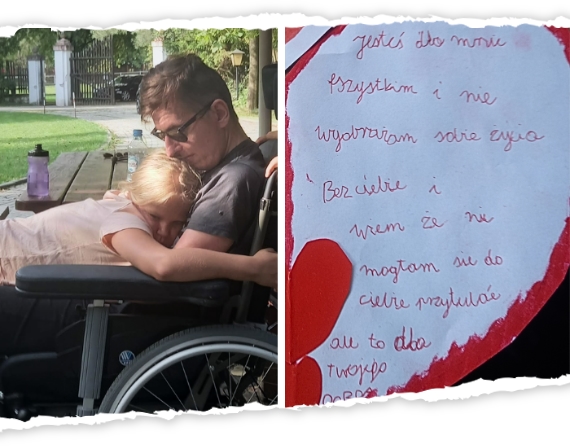 Jesteś dla mnie
Wszystkim i nie
wyobrażam sobie życia
Bez ciebie i
wiem że nie
mogłam się do
ciebie przytulać
ale to dla
twojego